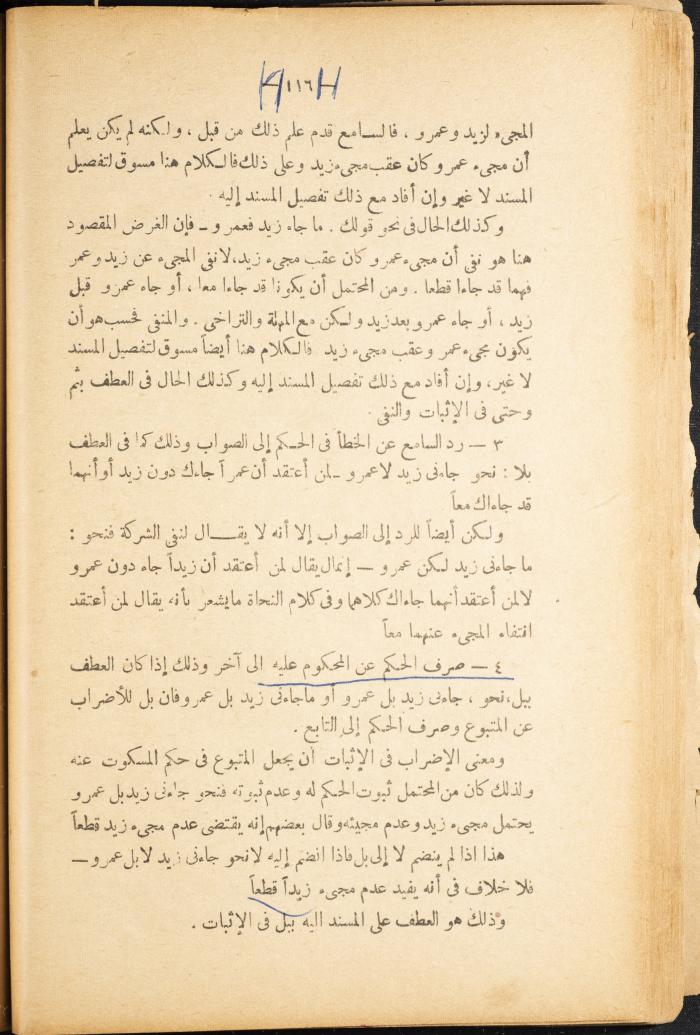 ١١٦
المجىء لزيد وعمرو ، فالسامع قدم علم ذلك من قبل ، ولكنه لم يكن يعلم
أن مجىء عمرو كان عقب مجىء زيد وعلى ذلك فالكلام هنا مسوق لتفصيل
المسند لا غير وإن أفاد مع ذلك تفصيل المسند إليه .
وكذلك الحال فى نحو قولك . ما جاء زيد فعمرو ـ فإن الغرض المقصود
هنا هو نفى أن مجىء عمرو كان عقب مجىء زيد، لا نفى المجىء عن زيد وعمر
فهما قد جاءا قطعا . ومن المحتمل أن يكونا قد جاءا معا ، أو جاء عمرو قبل
زيد ، أو جاء عمرو بعد زيد ولكن مع المهلة والتراخى . والمنفى فحسب هو أن
يكون مجىء عمر وعقب مجىء زيد فالكلام هنا أيضاً مسوق لتفصيل المسند
لا غير، وإن أفاد مع ذلك تفصيل المسند إليه وكذلك الحال فى العطف بثم
وحتى فى الإثبات والنفى .
٣ — رد السامع عن الخطأ فى الحكم إلى الصواب وذلك كما فى العطف
بلا : نحو جاءنى زيد لاعمرو ـ لمن أعتقد أن عمراً جاءك دون زيد أو أنهما
قد جاءاك معاً
ولكن أيضاً للرد إلى الصواب إلا أنه لا يقال لنفى الشركة فنحو :
ما جاءنى زيد لكن عمرو — إنما يقال لمن أعتقد أن زيداً جاء دون عمرو
لا لمن أعتقد أنهما جاءاك كلاهما وفى كلام النحاة ما يشعر بأنه يقال لمن أعتقد
انتفاء المجىء عنهما معاً
٤ — صرف الحكم عن المحكوم عليه الى آخر وذلك إذا كان العطف
ببل، نحو ، جاءنى زيد بل عمرو أو ماجاءنى زيد بل عمرو فان بل للأضراب
عن المتبوع وصرف الحكم إلى التابع .
ومعنى الإضراب فى الإثبات أن يجعل المتبوع فى حكم المسكوت عنه
ولذلك كان من المحتمل ثبوت الحكم له وعدم ثبوته فنحو جاءنى زيد بل عمرو
يحتمل مجىء زيد وعدم مجيئه وقال بعضهم إنه يقتضى عدم مجىء زيد قطعاً
هذا اذا لم ينضم لا إلى بل فاذا انضم إليه لا نحو جاءنى زيد لا بل عمرو —
فلا خلاف فى أنه يفيد عدم مجىء زيداً قطعاً
وذلك هو العطف على المسند اليه ببل فى الإثبات .